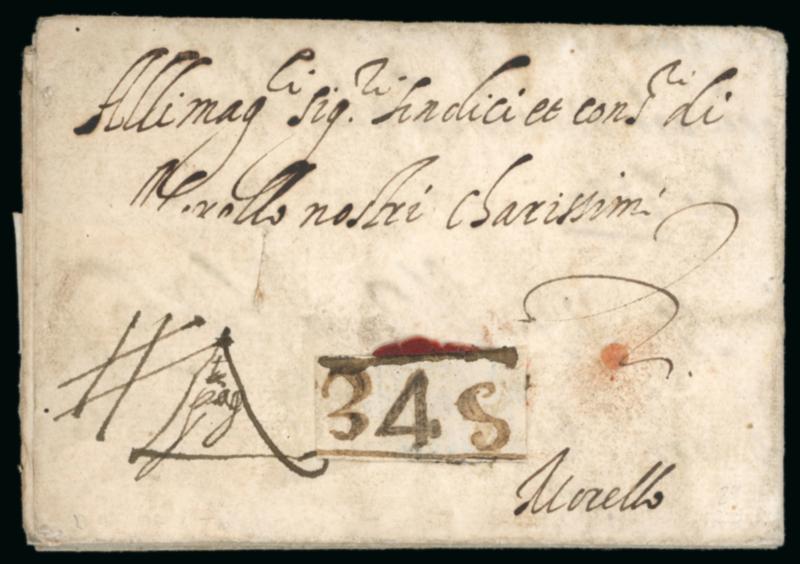 Alli mag.ci sig.ri sindici et cons.ri di
Morello nostri charissimi
34 s
Morello